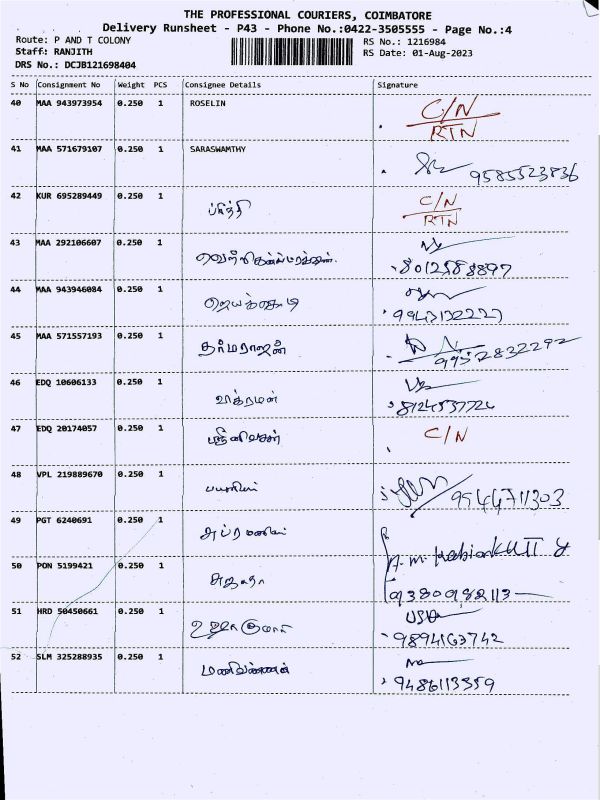 THE PROFESSIONAL COURIERS, COIMBATORE
Delivery Runsheet - P43 - Phone No.:0422-3505555 - Page No.:4
Route: P AND T COLONY
RS No.: 1216984
Staff: RANJITH
RS Date: 01-Aug-2023
DRS No.: DCJB121698404
S No Consignment No Weight PCS Consignee Details Signature
40 MAA 943973954 0.250 1 ROSELIN C/N
RTN
41 MAA 571679107 0.250 1 SARASWAMTHY
9585523836
42 KUR 695289449 0.250 1 C/N
ப்ரித்தி RTN
43 MAA 292106607 0.250 1
8012588897
44 MAA 943946084 0.250 1
ஜெயக்கொடி 9943132227
45 MAA 571557193 0.250 1
தர்மராஜன் 9952832292
46 EDQ 10606133 0.250 1
விக்ரமன் 8124537724
47 EDQ 20174057 0.250 1 C/N
ஸ்ரீனிவாசன்
48 VPL 219889670 0.250 1
9544711303
49 PGT 6240691 0.250 1
50 PON 5199421 0.250 1
சுஜாதா 9380982113
51 HRD 50450661 0.250 1
உஷாகுமாரி 9894163742
52 SLM 325288935 0.250 1
மணிவண்ணன் 9486113359